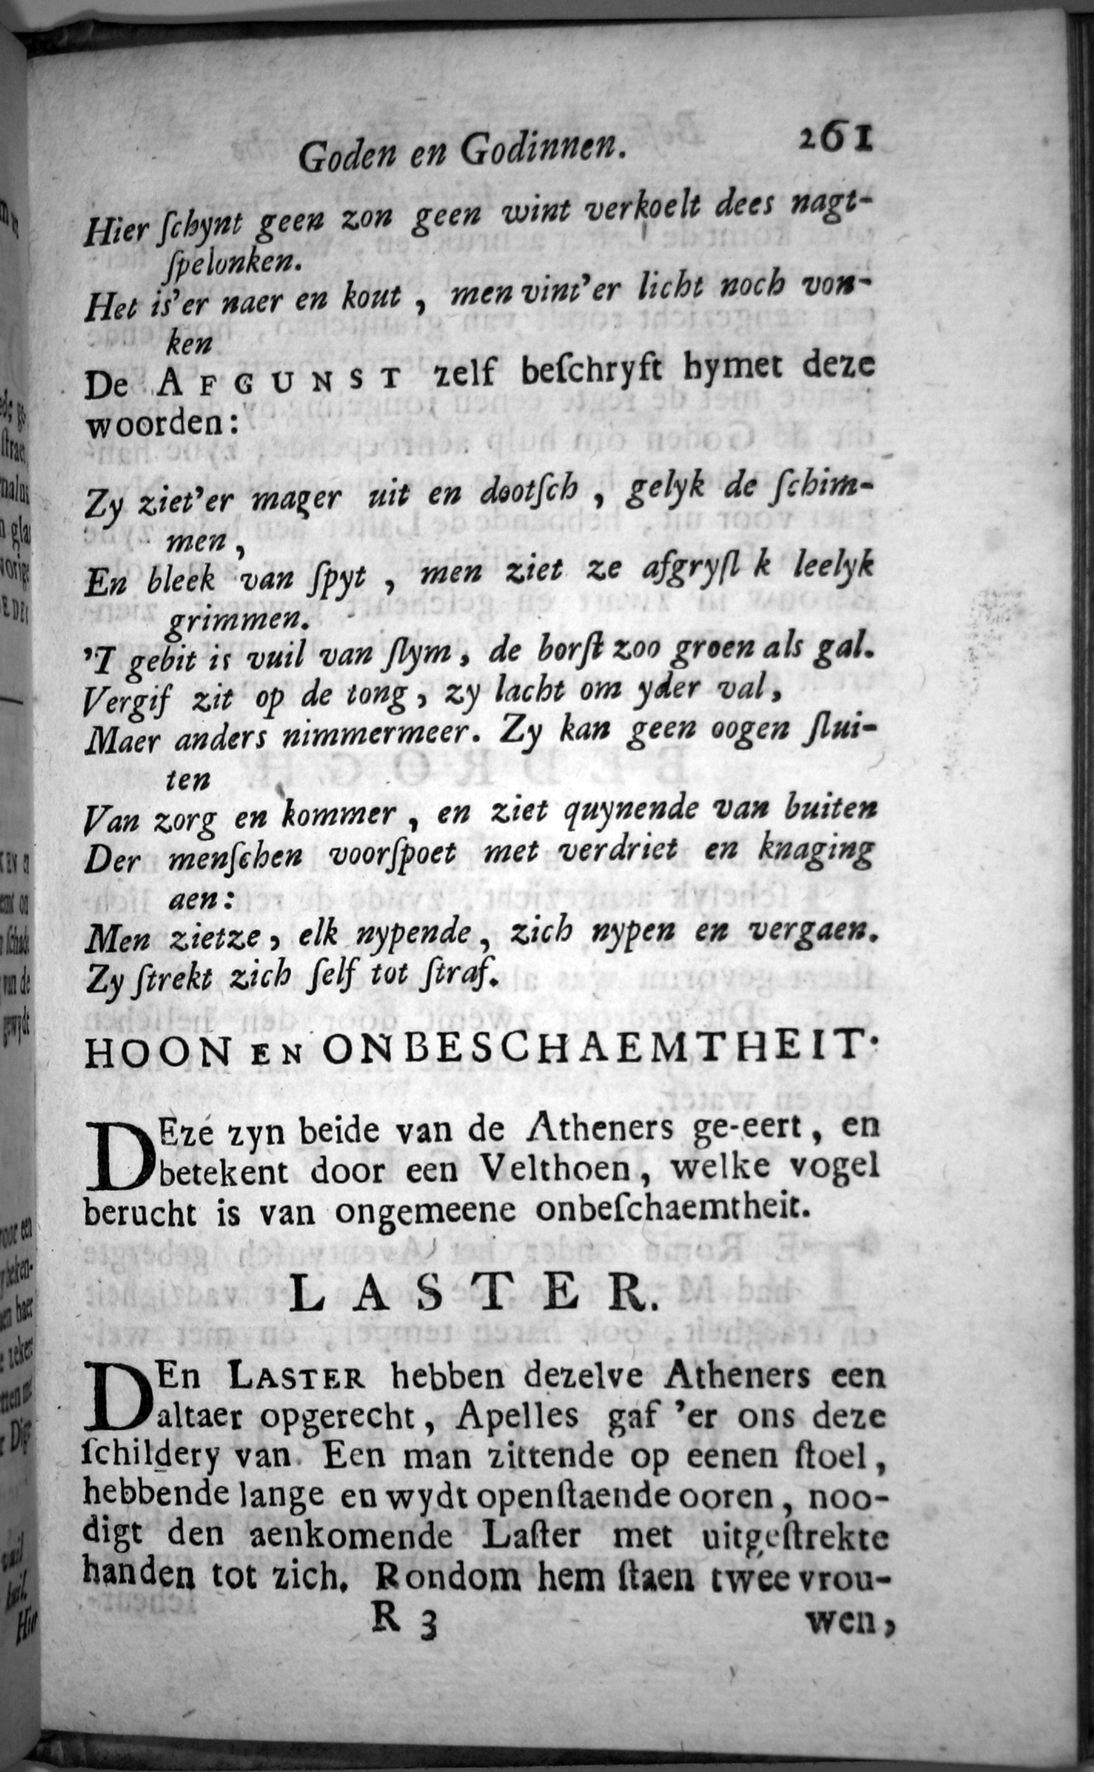 Goden en Godinnen. 261
Hier ſchynt geen zon geen wint verkoelt dees nagt-
ſpelonken.
Het is'er naer en kout , men vint'er licht noch von-
ken
De AFGUNST zelf beſchryft hymet deze
woorden:
Zy ziet'er mager uit en dootſch , gelyk de ſchim-
men ,
En bleek van ſpyt , men ziet ze afgryſl k leelyk
grimmen.
'T gebit is vuil van ſlym , de borſt zoo groen als gal.
Vergif zit op de tong , zy lacht om yder val ,
Maer anders nimmermeer. Zy kan geen oogen ſlui-
ten
Van zorg en kommer , en ziet quynende van buiten
Der menſchen voorſpoet met verdriet en knaging
aen :
Men zietze , elk nypende , zich nypen en vergaen.
Zy ſtrekt zich ſelf tot ſtraf.
HOON EN ONBESCHAEMTHEIT.
DEze zyn beide van de Atheners ge-eert , en
betekent door een Velthoen , welke vogel
berucht is van ongemeene onbeſchaemtheit.
LASTER.
DEn LASTER hebben dezelve Atheners een
altaer opgerecht , Apelles gaf 'er ons deze
ſchildery van. Een man zittende op eenen ſtoel ,
hebbende lange en wydt openſtaende ooren , noo-
digt den aenkomende Laſter met uitgeſtrekte
handen tot zich. Rondom hem ſtaen twee vrou-
R 3 wen ,